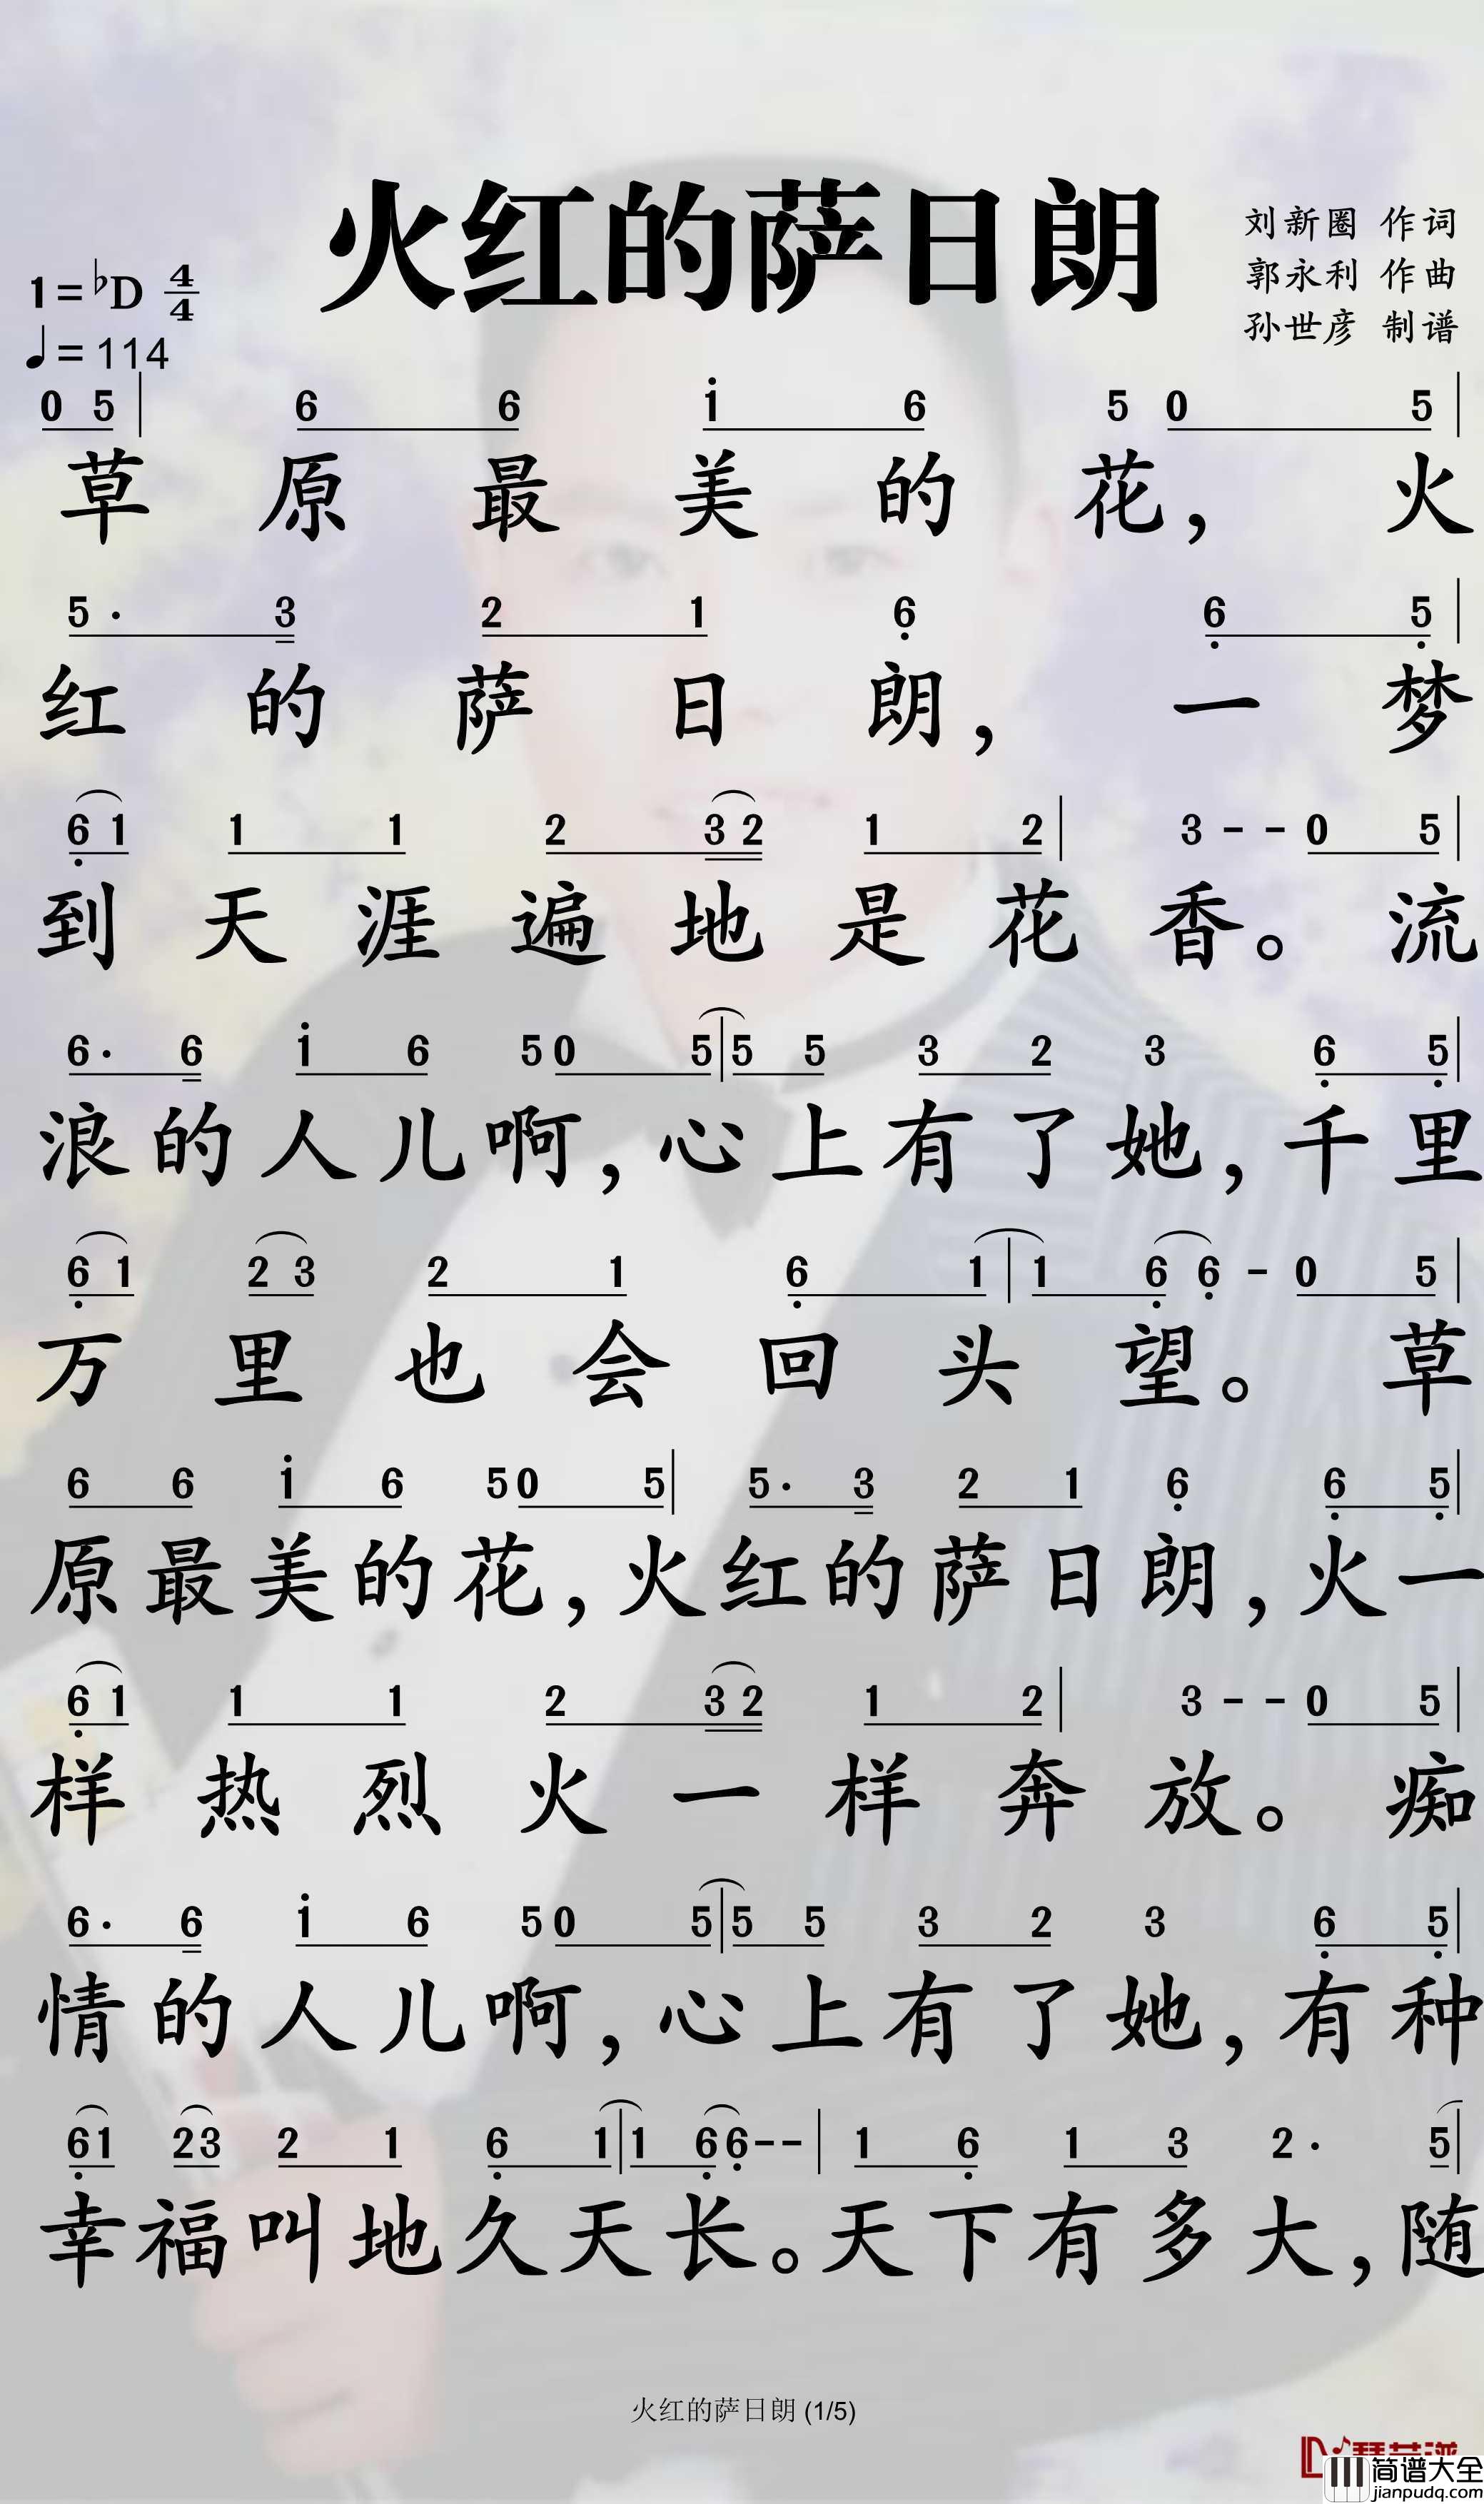 火红的萨日朗
刘新圈 作词
郭永利 作曲
孙世彦 制谱
1=♭D 4/4
♩=114
0 5 | 6 6 i 6 5 0 5 |
草 原 最 美 的 花, 火
5· 3 2 1 6 6 5 |
红 的 萨 日 朗, 一 梦
6 1 1 1 2 3 2 1 2 | 3 - - 0 5 |
到 天 涯 遍 地 是 花 香。 流
6· 6 i 6 5 0 5 | 5 5 3 2 3 6 5 |
浪 的 人 儿 啊, 心 上 有 了 她, 千 里
6 1 2 3 2 1 6 1 | 1 6 6 - 0 5 |
万 里 也 会 回 头 望。 草
6 6 i 6 5 0 5 | 5· 3 2 1 6 6 5 |
原 最 美 的 花, 火 红 的 萨 日 朗, 火 一
6 1 1 1 2 3 2 1 2 | 3 - - 0 5 |
样 热 烈 火 一 样 奔 放。 痴
6· 6 i 6 5 0 5 | 5 5 3 2 3 6 5 |
情 的 人 儿 啊, 心 上 有 了 她, 有 种
6 1 2 3 2 1 6 1 | 1 6 6 - - | 1 6 1 3 2· 5 |
幸 福 叫 地 久 天 长。 天 下 有 多 大, 随
火红的萨日朗 (1/5)
简谱大全
jianpudq.com